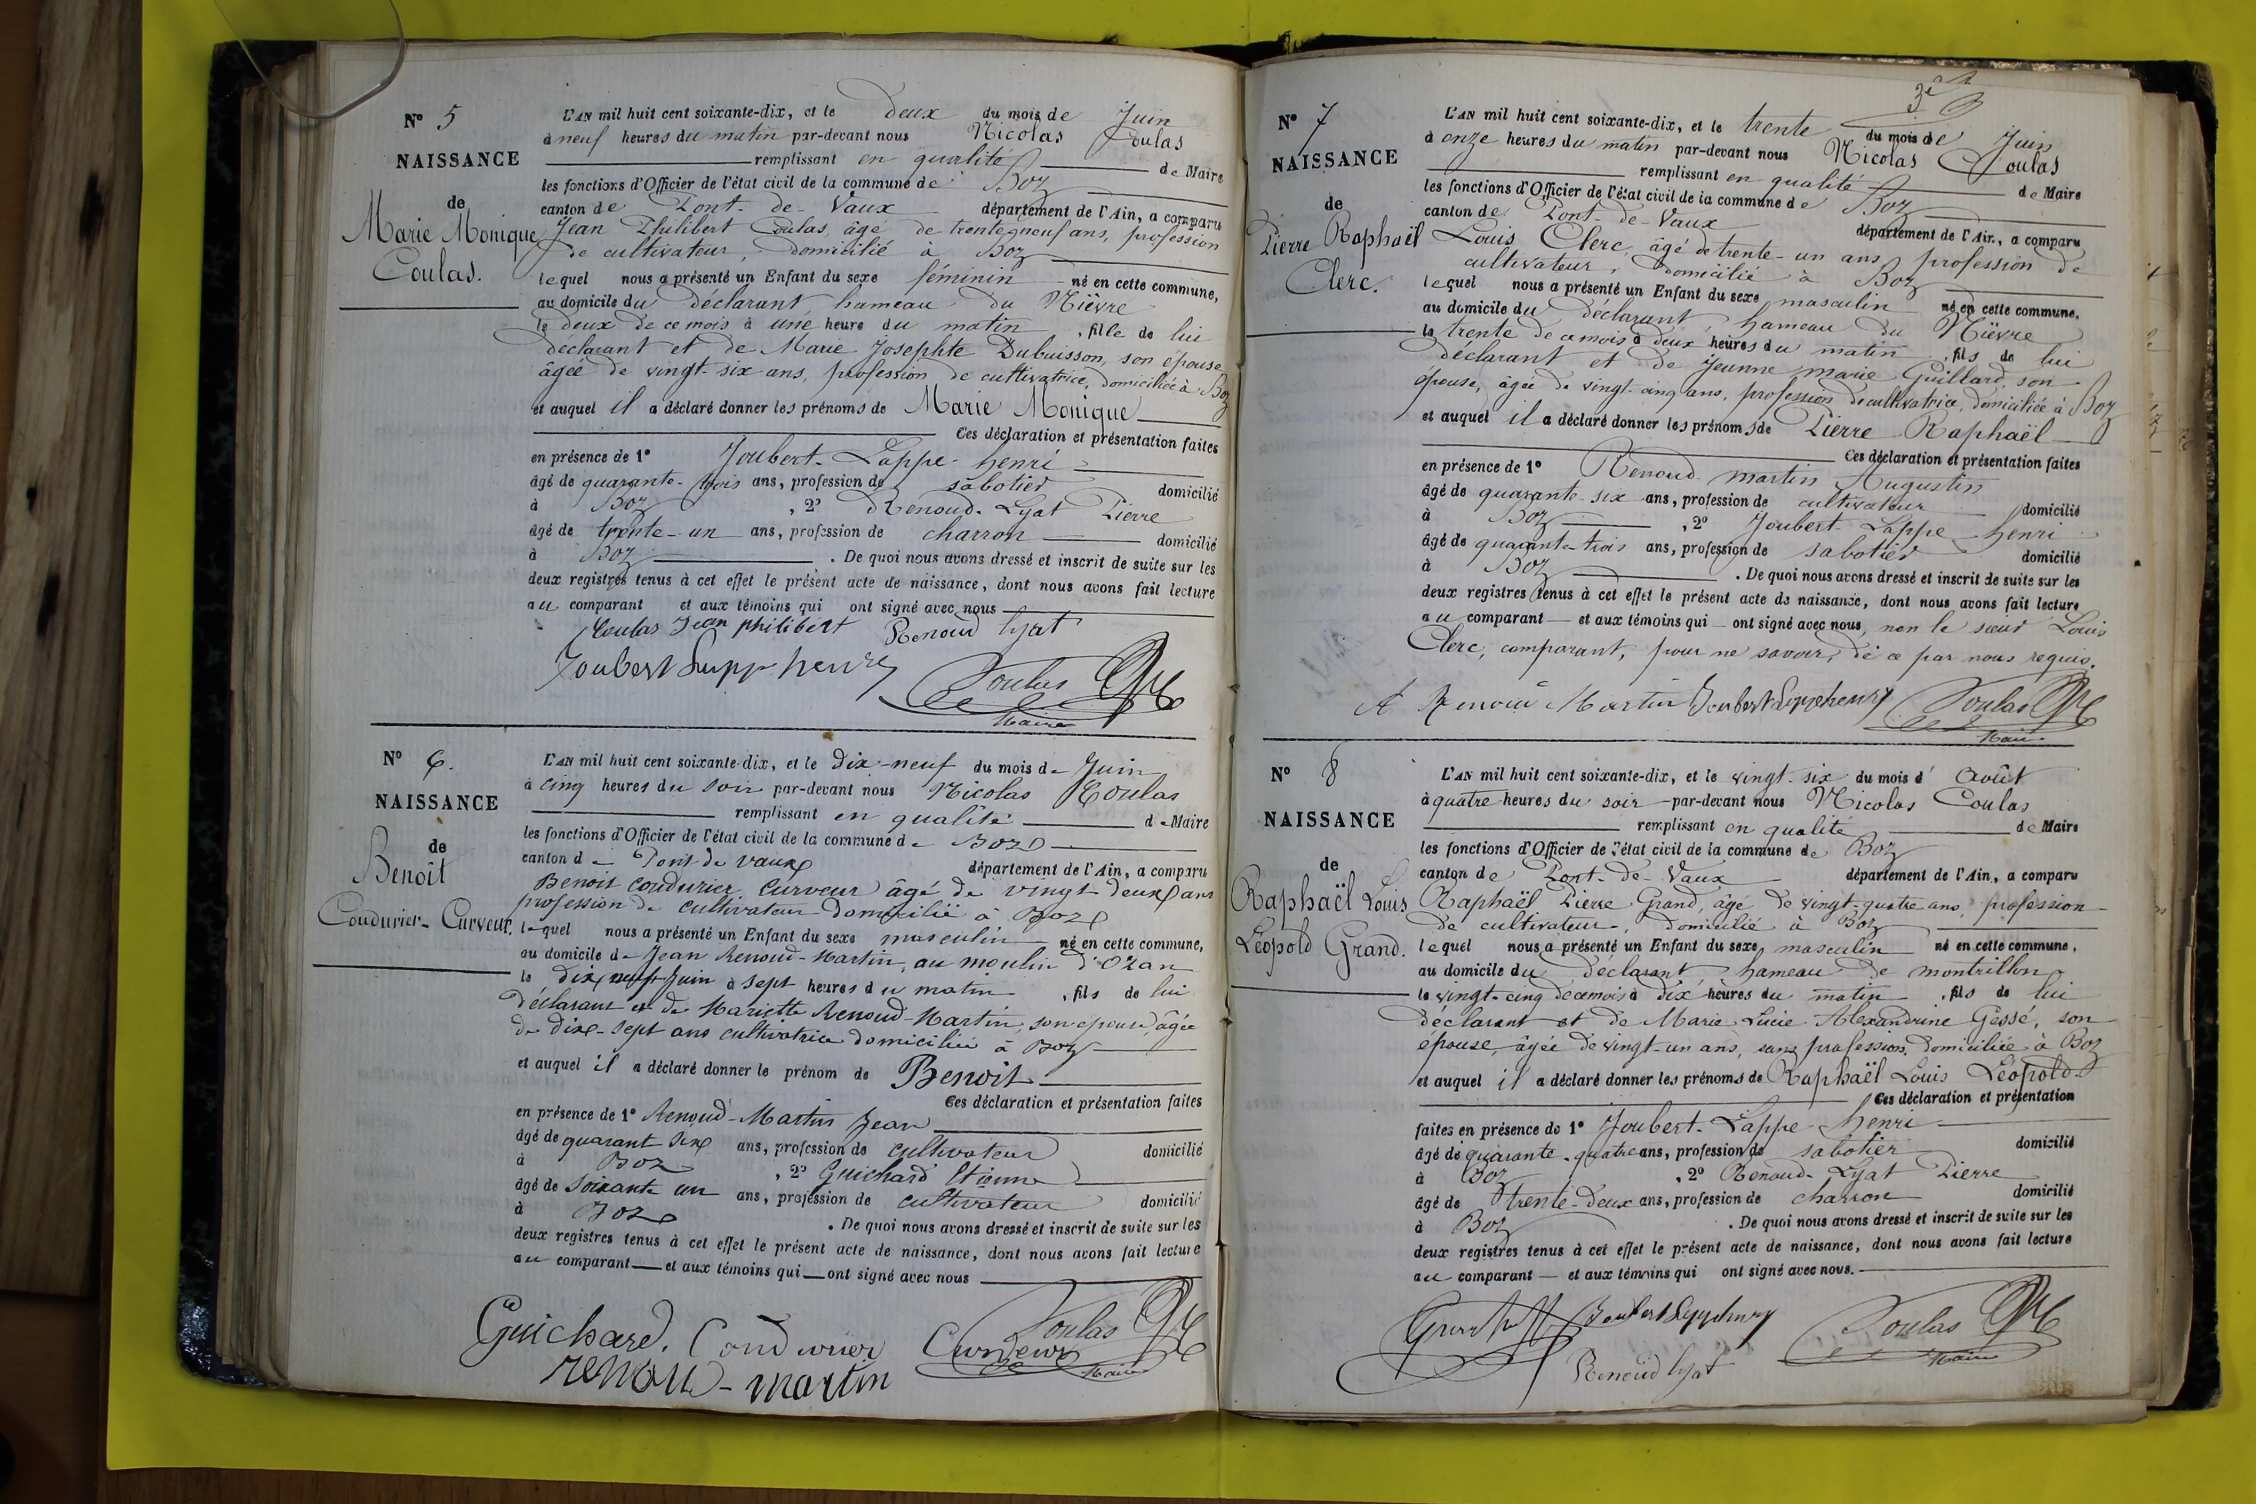 N° 5
NAISSANCE
de
Marie Monique
Coulas.
L'AN mil huit cent soixante-dix, et le deux du mois de Juin
à neuf heures du matin par-devant nous Nicolas Coulas
remplissant en qualité de Maire
les fonctions d'Officier de l'état civil de la commune de Boz
canton de Pont-de-Vaux département de l'Ain, a comparu
Jean Philibert Coulas, âgé de trente-neuf ans, profession
de cultivateur, domicilié à Boz
lequel nous a présenté un Enfant du sexe féminin né en cette commune,
au domicile du déclarant hameau du Nièvre
le deux de ce mois à une heure du matin, fille de lui
déclarant et de Marie Josephte Dubuisson, son épouse
âgée de vingt-six ans, profession de cultivatrice, domiciliée à Boz
et auquel il a déclaré donner les prénoms de Marie Monique
Ces déclaration et présentation faites
en présence de 1° Joubert-Lappe henri
âgé de quarante-trois ans, profession de sabotier domicilié
à Boz, 2° Renoud-Lyat Pierre
âgé de trente-un ans, profession de charron domicilié
à Boz. De quoi nous avons dressé et inscrit de suite sur les
deux registres tenus à cet effet le présent acte de naissance, dont nous avons fait lecture
au comparant et aux témoins qui ont signé avec nous
Coulas Jean philibert Renoud lyat
Joubert Lapp henri Coulas
Maire
N° 6.
NAISSANCE
de
Benoît
Coudurier-Curveur.
L'AN mil huit cent soixante-dix, et le dix-neuf du mois de Juin
à cinq heures du soir par-devant nous Nicolas Coulas
remplissant en qualité de Maire
les fonctions d'Officier de l'état civil de la commune de Boz
canton de Pont-de-vaux département de l'Ain, a comparu
Benoit coudurier Curveur âgé de vingt deux ans
profession de cultivateur domicilié à Boz
lequel nous a présenté un Enfant du sexe masculin né en cette commune,
au domicile de Jean Renoud-Martin, au moulin d'Ozan
le dix neuf Juin à sept heures du matin, fils de lui
déclarant et de Mariette Renoud-Martin, son épouse, âgée
de dix-sept ans cultivatrice domiciliée à Boz
et auquel il a déclaré donner le prénom de Benoit
Ces déclaration et présentation faites
en présence de 1° Renoud-Martin Jean
âgé de quarant six ans, profession de cultivateur domicilié
à Boz, 2° Guichard Etienne
âgé de soixante un ans, profession de cultivateur domicilié
à Boz. De quoi nous avons dressé et inscrit de suite sur les
deux registres tenus à cet effet le présent acte de naissance, dont nous avons fait lecture
au comparant et aux témoins qui ont signé avec nous
Guichard. Condurier Curveur Coulas
renou-martin Maire
3e
N° 7
NAISSANCE
de
Pierre Raphaël
Clerc.
L'AN mil huit cent soixante-dix, et le trente du mois de Juin
à onze heures du matin par-devant nous Nicolas Coulas
remplissant en qualité de Maire
les fonctions d'Officier de l'état civil de la commune de Boz
canton de Pont-de-Vaux département de l'Ain, a comparu
Louis Clerc, âgé de trente-un ans, profession de
cultivateur, domicilié à Boz
lequel nous a présenté un Enfant du sexe masculin né en cette commune,
au domicile du déclarant, hameau du Nièvre
le trente de ce mois à deux heures du matin, fils de lui
déclarant et de Jeanne marie Guillard, son
épouse, âgée de vingt-cinq ans, profession de cultivatrice, domiciliée à Boz
et auquel il a déclaré donner les prénoms de Pierre Raphaël
Ces déclaration et présentation faites
en présence de 1° Renoud-martin Augustin
âgé de quarante-six ans, profession de cultivateur domicilié
à Boz, 2° Joubert-Lappe henri
âgé de quarante-trois ans, profession de sabotier domicilié
à Boz. De quoi nous avons dressé et inscrit de suite sur les
deux registres tenus à cet effet le présent acte de naissance, dont nous avons fait lecture
au comparant et aux témoins qui ont signé avec nous, non le sieur Louis
Clerc, comparant, pour ne savoir, de ce par nous requis.
A Renoud Martin Joubert Lappe henri Coulas
Maire
N° 8
NAISSANCE
de
Raphaël Louis
Léopold Grand.
L'AN mil huit cent soixante-dix, et le vingt-six du mois d'Août
à quatre heures du soir par-devant nous Nicolas Coulas
remplissant en qualité de Maire
les fonctions d'Officier de l'état civil de la commune de Boz
canton de Pont-de-Vaux département de l'Ain, a comparu
Raphaël Pierre Grand, âgé de vingt-quatre ans, profession
de cultivateur, domicilié à Boz
lequel nous a présenté un Enfant du sexe masculin né en cette commune,
au domicile du déclarant hameau de montrillon
le vingt-cinq de ce mois à dix heures du matin, fils de lui
déclarant et de Marie Lucie Alexandrine Gessé, son
épouse, âgée de vingt-un ans, sans profession, domiciliée à Boz
et auquel il a déclaré donner les prénoms de Raphaël Louis Léopold
Ces déclaration et présentation
faites en présence de 1° Joubert-Lappe henri
âgé de quarante-quatre ans, profession de sabotier domicilié
à Boz, 2° Renoud-Lyat Pierre
âgé de trente-deux ans, profession de charron domicilié
à Boz. De quoi nous avons dressé et inscrit de suite sur les
deux registres tenus à cet effet le présent acte de naissance, dont nous avons fait lecture
au comparant et aux témoins qui ont signé avec nous.
Joubert Lappe henry Coulas
Renoud lyat Maire